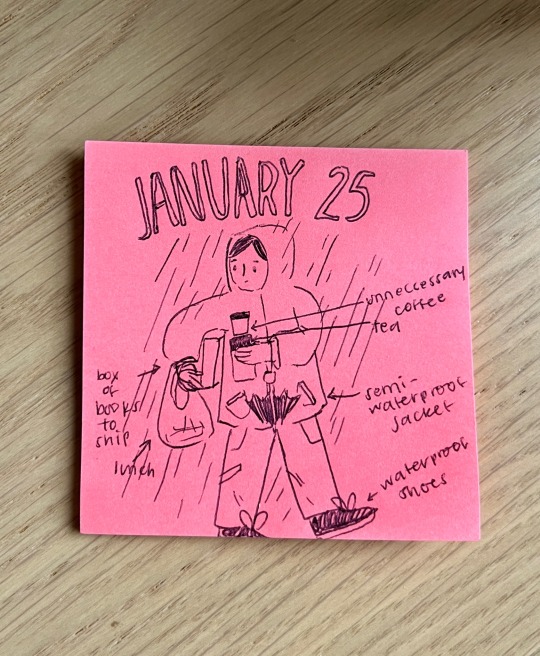 JANUARY 25
unneccessary
coffee
tea
box
of
books
to
ship
lunch
semi-
waterproof
jacket
waterproof
shoes